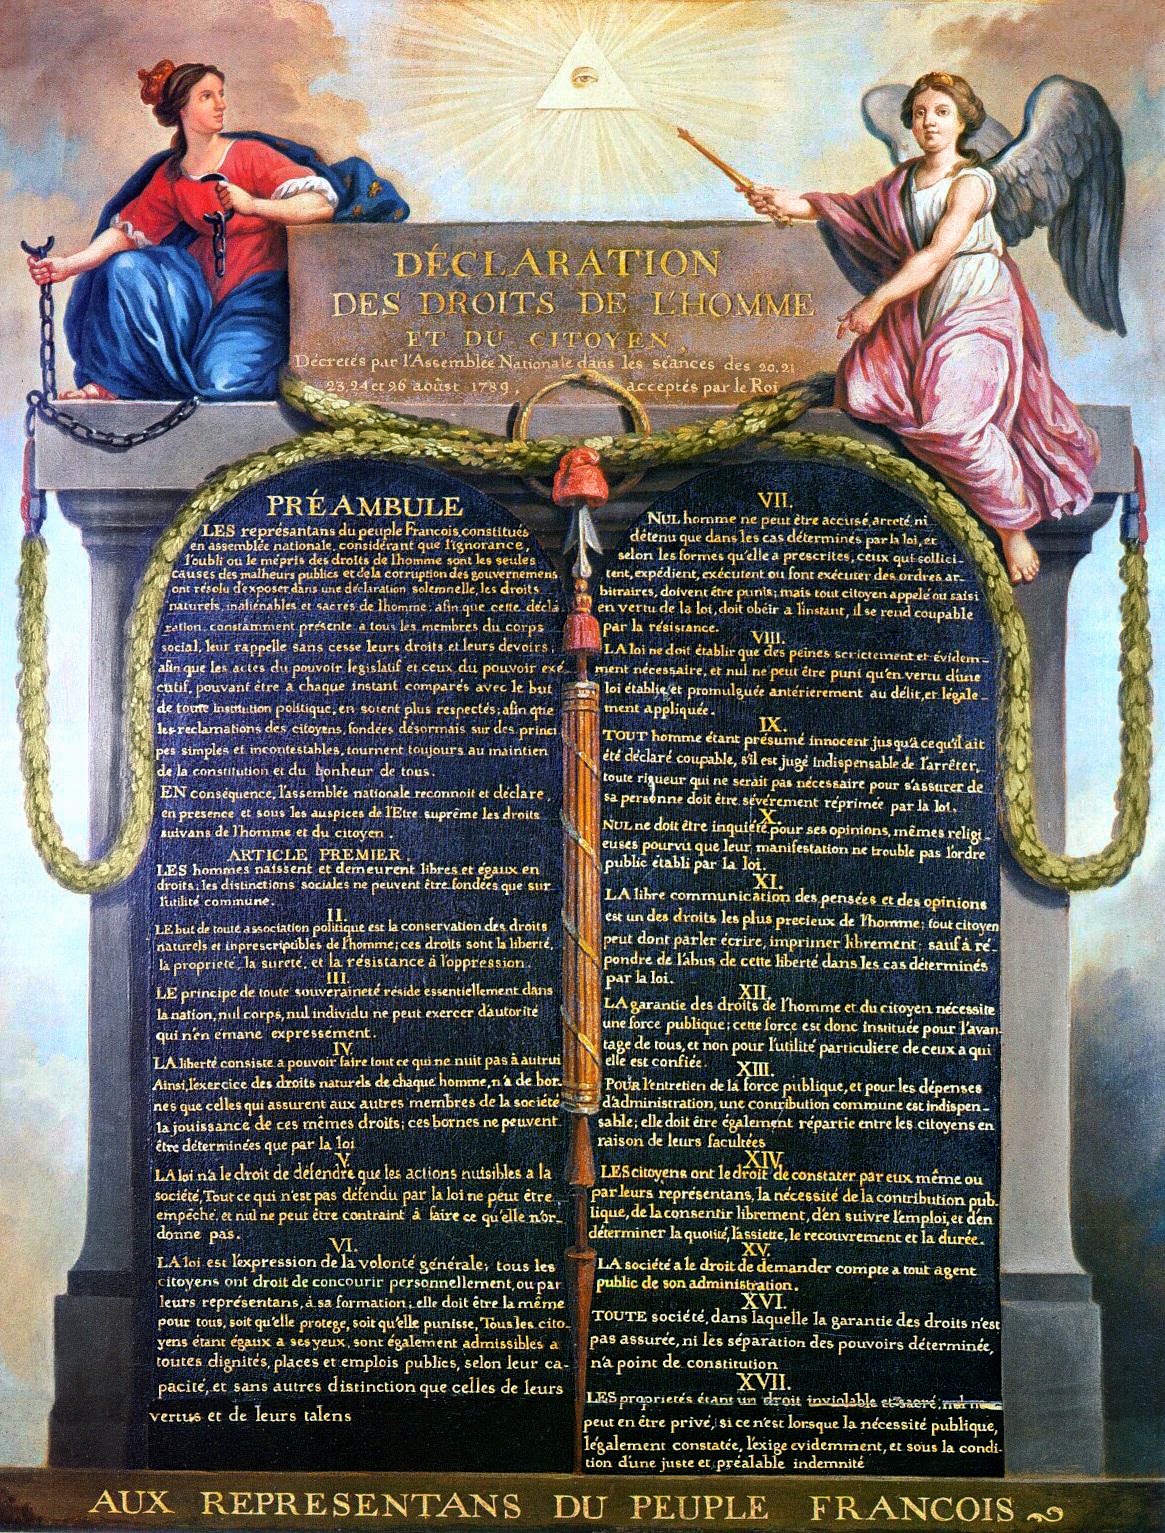 DÉCLARATION
DES DROITS DE L'HOMME
ET DU CITOYEN,
Décretés par l'Assemblée Nationale dans les séances des 20, 21
23, 24 et 26 août 1789, acceptés par le Roi
PRÉAMBULE
LES représantans du peuple François, constitués
en assemblée nationale, considérant que l'ignorance,
l'oubli ou le mépris des droits de l'homme sont les seules
causes des malheurs publics et de la corruption des gouvernemens
ont résolu d'exposer dans une déclaration solemnelle, les droits
naturels, inaliénables et sacrés de l'homme; afin que cette décla
ration, constamment présente a tous les membres du corps
social, leur rappelle sans cesse leurs droits et leurs devoirs;
afin que les actes du pouvoir legislatif et ceux du pouvoir exé
cutif, pouvant être a chaque instant comparés avec le but
de toute institution politique, en soient plus respectés; afin que
les reclamations des citoyens, fondées désormais sur des princi
pes simples et incontestables, tournent toujours au maintien
de la constitution et du bonheur de tous.
EN conséquence, l'assemblée nationale reconnoit et déclare,
en presence et sous les auspices de l'Etre suprême les droits
suivans de l'homme et du citoyen.
ARTICLE PREMIER.
LES hommes naissent et demeurent libres et égaux en
droits; les distinctions sociales ne peuvent être fondées que sur
l'utilité commune.
II.
LE but de toute association politique est la conservation des droits
naturels et inprescriptibles de l'homme; ces droits sont la liberté,
la propriete, la sureté, et la résistance à l'oppression.
III.
LE principe de toute souveraineté réside essentiellement dans
la nation, nul corps, nul individu ne peut exercer d'autorité
qui n'en emane expressément.
IV.
LA liberté consiste a pouvoir faire tout ce qui ne nuit pas à autrui
Ainsi, l'exercice des droits naturels de chaque homme, n'a de bor-
nes que celles qui assurent aux autres membres de la société
la jouissance de ces mêmes droits; ces bornes ne peuvent
être déterminées que par la loi
V.
LA loi n'a le droit de défendre que les actions nuisibles a la
société, Tout ce qui n'est pas défendu par la loi ne peut être
empéché, et nul ne peut être contraint à faire ce qu'elle n'or-
donne pas.
VI.
LA loi est l'expression de la volonté générale; tous les
citoyens ont droit de concourir personnellement, ou par
leurs représentans, à sa formation; elle doit être la même
pour tous, soit qu'elle protege, soit qu'elle punisse, Tous les cito-
yens étant égaux a ses yeux, sont également admissibles a
toutes dignités, places et emplois publics, selon leur ca-
pacité, et sans autres distinction que celles de leurs
vertus et de leurs talens
VII.
NUL homme ne peut être accusé, arreté, ni
détenu que dans les cas déterminés par la loi, et
selon les formes qu'elle a prescrites, ceux qui sollici-
tent, expédient, exécutent ou font exécuter des ordres ar-
bitraires, doivent être punis; mais tout citoyen appelé ou saisi
en vertu de la loi, doit obéir a l'instant, il se rend coupable
par la résistance.
VIII.
LA loi ne doit établir que des peines strictement et évidem-
ment nécessaire, et nul ne peut être puni qu'en vertu d'une
loi établie, et promulguée antérierement au délit, et légale-
ment appliquée.
IX.
TOUT homme étant présumé innocent jusqu'à ce qu'il ait
été déclaré coupable, s'il est jugé indispensable de l'arrêter,
toute rigueur qui ne serait pas nécessaire pour s'assurer de
sa personne doit être sévèrement réprimée par la loi.
X.
NUL ne doit être inquiété pour ses opinions, mêmes religi-
euses pourvu que leur manifestation ne trouble pas l'ordre
public établi par la loi.
XI.
LA libre communication des pensées et des opinions
est un des droits les plus precieux de l'homme; tout citoyen
peut dont parler écrire, imprimer librement; sauf à ré-
pondre de l'abus de cette liberté dans les cas déterminés
par la loi.
XII.
LA garantie des droits de l'homme et du citoyen nécessite
une force publique; cette force est donc instituée pour l'avan-
tage de tous, et non pour l'utilité particuliere de ceux a qui
elle est confiée.
XIII.
POUR l'entretien de la force publique, et pour les dépenses
d'administration, une contribution commune est indispen-
sable; elle doit être également répartie entre les citoyens en
raison de leurs facultées
XIV.
LES citoyens ont le droit de constater par eux même ou
par leurs représentans, la nécessité de la contribution pub-
lique, de la consentir librement, d'en suivre l'emploi, et d'en
déterminer la quotité, l'assiette, le recouvrement et la durée.
XV.
LA société a le droit de demander compte a tout agent
public de son administration.
XVI.
TOUTE société, dans laquelle la garantie des droits n'est
pas assurée, ni les séparation des pouvoirs déterminée,
n'a point de constitution
XVII.
LES proprietés étant un droit inviolable et sacré, nul ne
peut en être privé, si ce n'est lorsque la nécessité publique,
légalement constatée, l'exige evidemment, et sous la condi-
tion d'une juste et préalable indemnité
AUX REPRESENTANS DU PEUPLE FRANCOIS